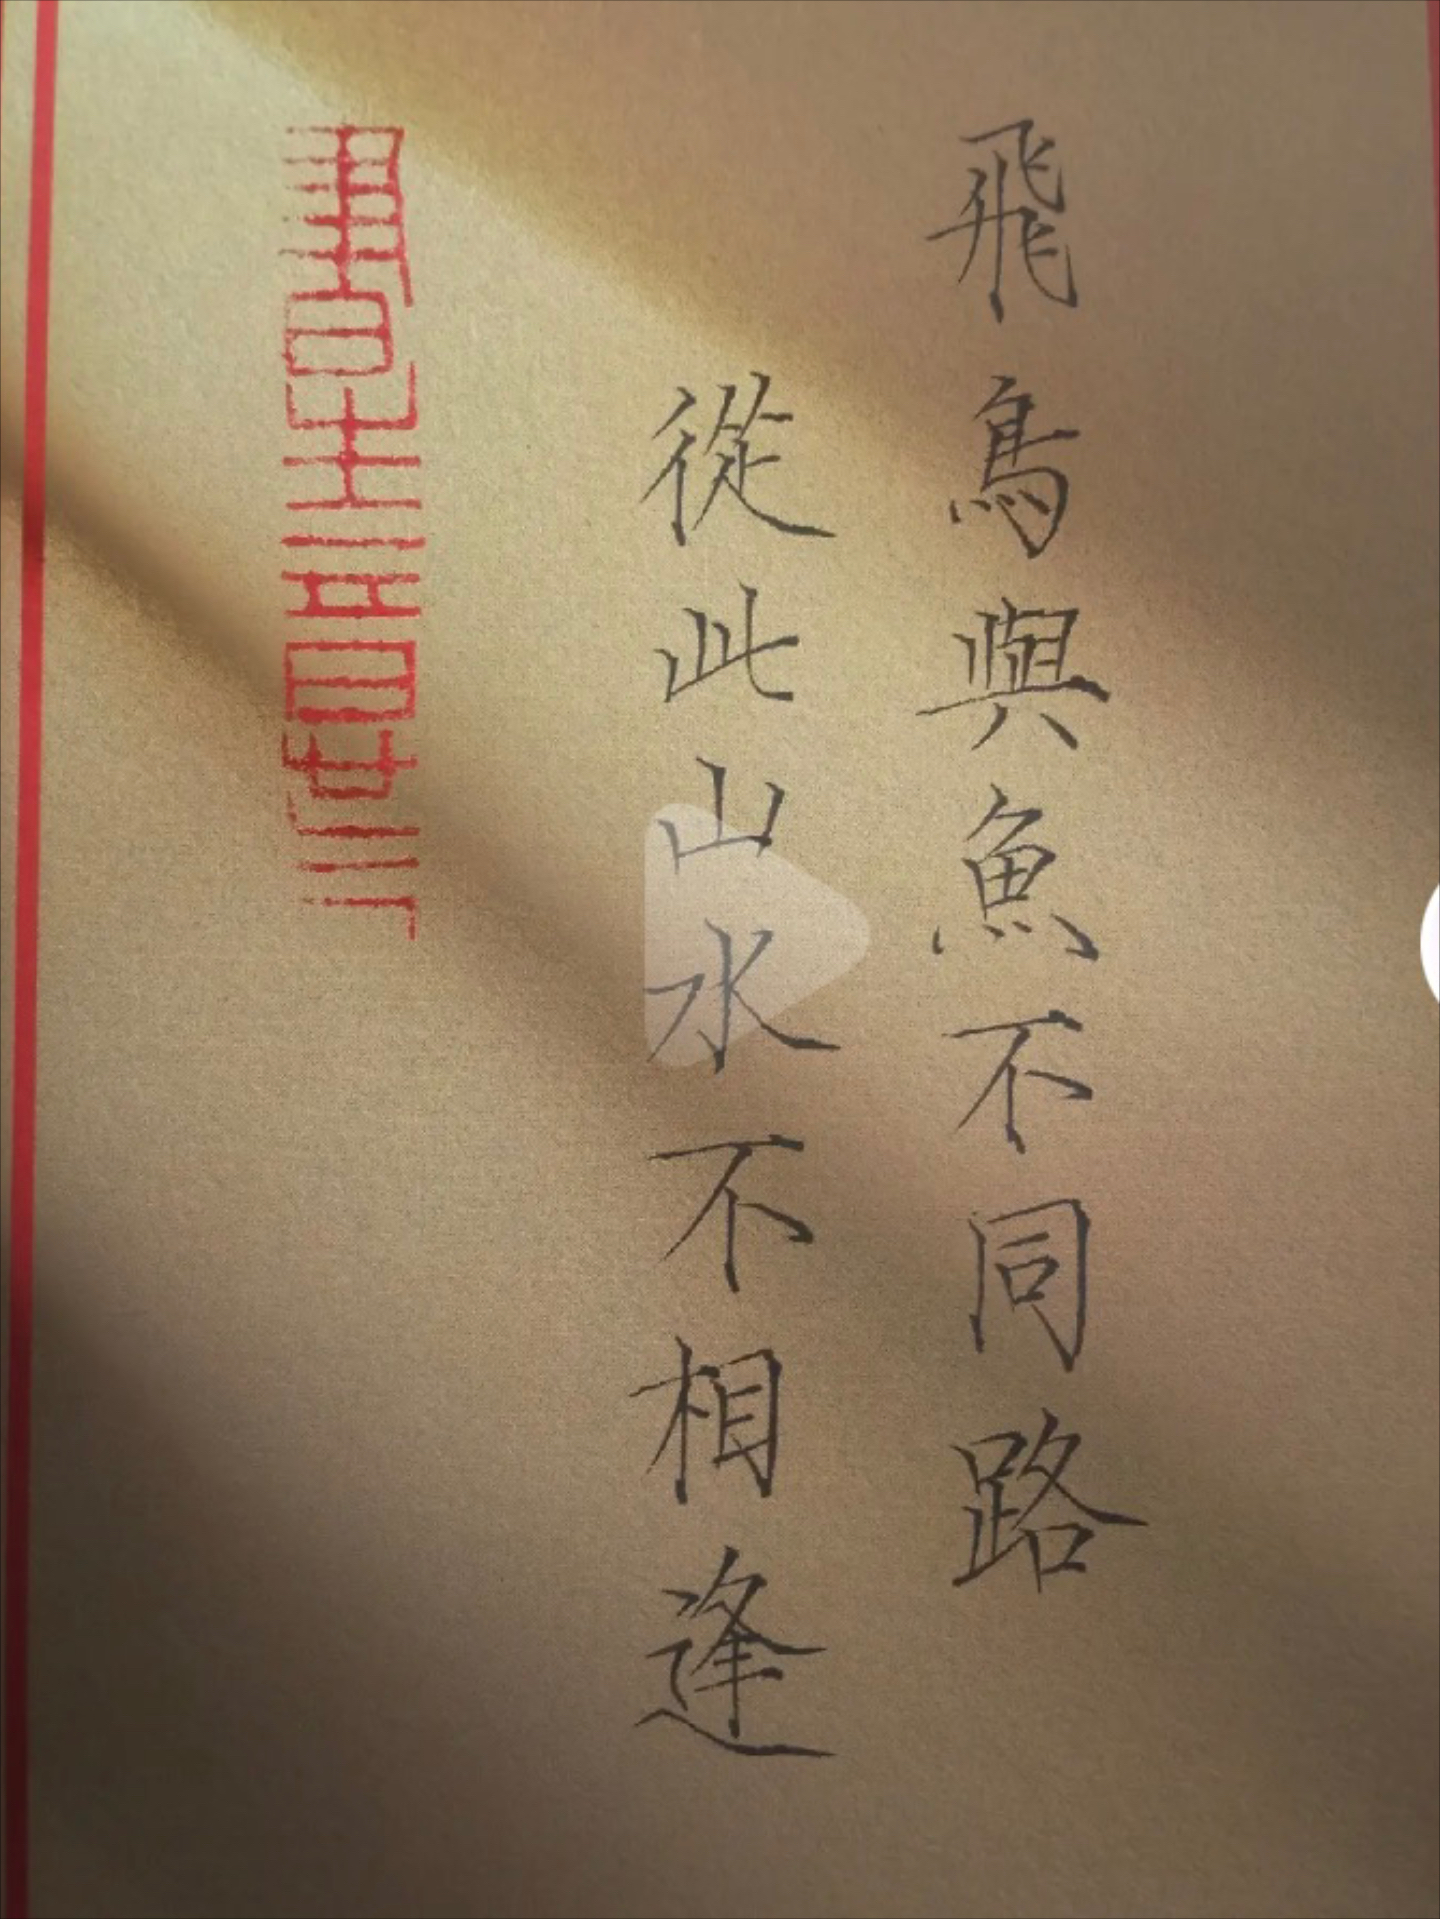 飛鳥與魚不同路
從此山水不相逢